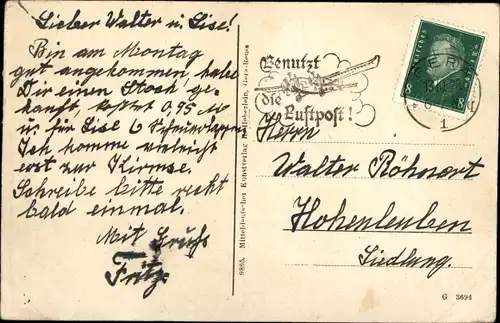 Lieber Walter u. Lise!
Bin am Montag
gut angekommen, habe
Dir einen Stock ge-
kauft, kostet 0,95 M
u. für Lise 6
Ich komme vieleicht
erst zur Kirmse.
Schreibe bitte recht
bald einmal.
Mit Gruß
Fritz
9895. Mitteldeutscher Kunstverlag Heberlein, Gera-Reuss
Benutzt
die Luftpost!
DEUTSCHES REICH
8 8
1
Herrn
Walter Röhnert
Hohenleuben
Siedlung.
G 3694